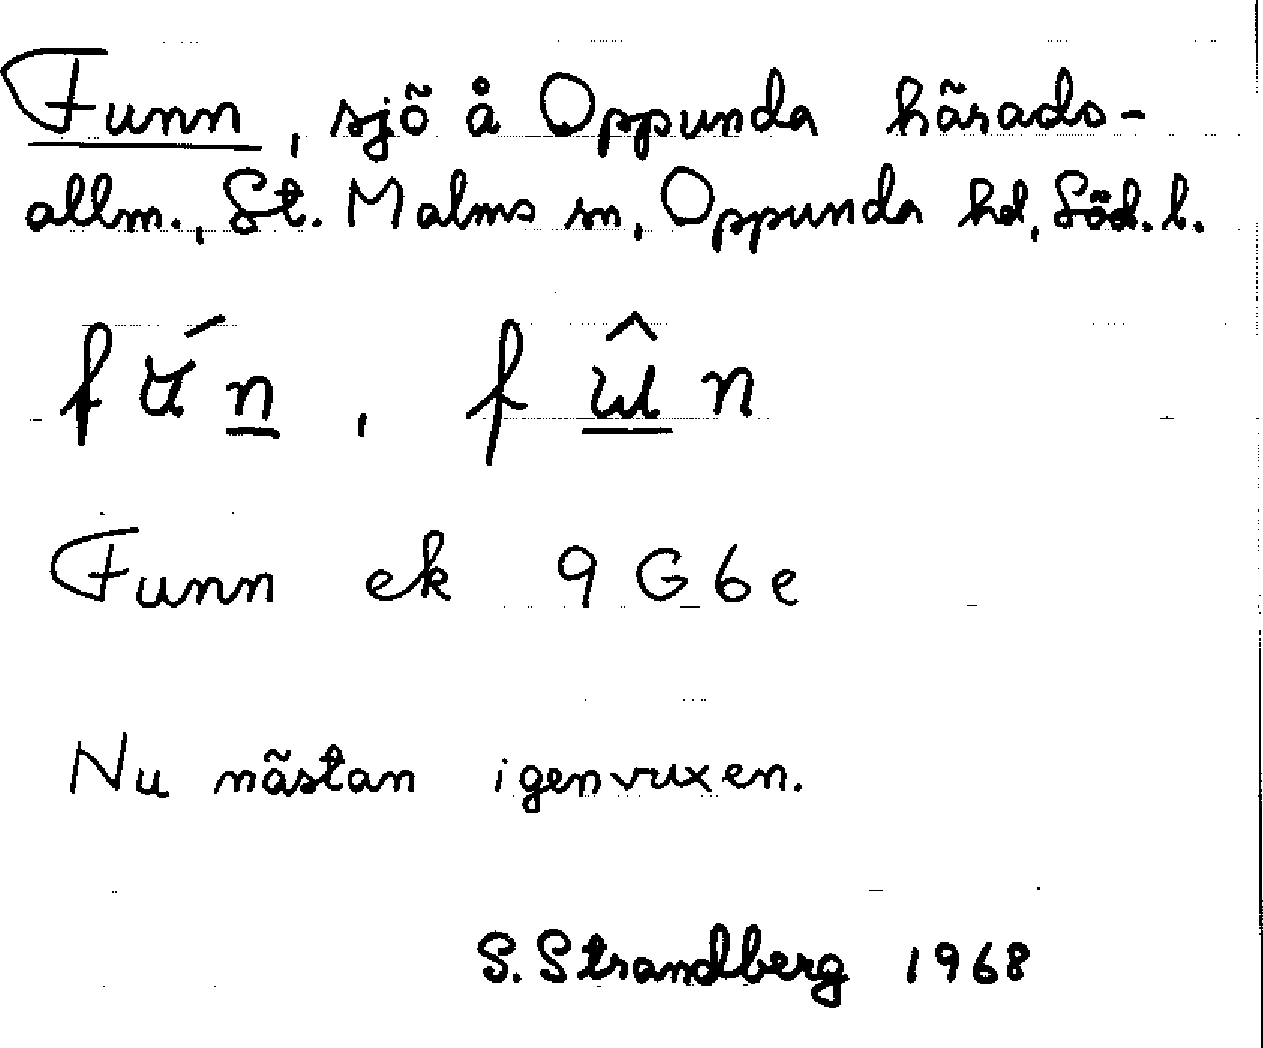 Funn, sjö å Oppunda härads-
allm., St. Malms sn, Oppunda hd, Söd. l.
Funn ek 9G6e
Nu nästan igenvuxen.
S. Strandberg 1968